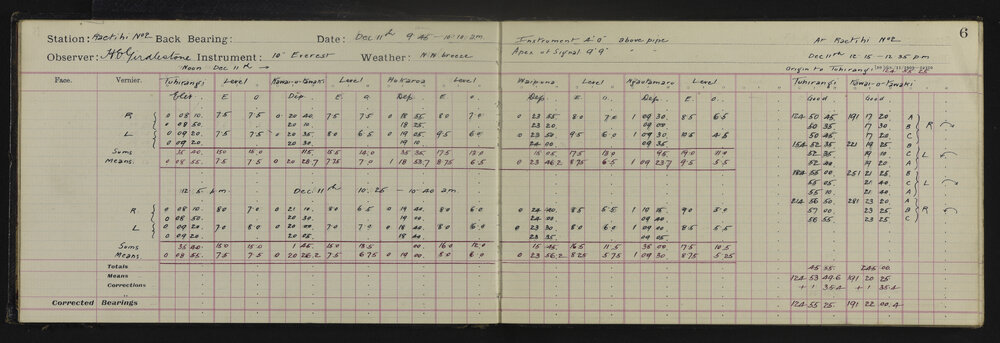 Station: Raetihi No2 Back Bearing: Date: Dec 11th 9 45 – 10.10 a.m.
Observer: Instrument: 10" Everest Weather: N.W. breeze
Noon Dec 11th →
Face. Vernier. Tuhirangi Level Kawai-o-Tawaki Level Hukaroa Level
Elev E O Dep. E. O. Dep. E O
R 0 08 10. 7.5 7.5 0 20 40. 7.5 7.5 0 18 55 8.0 7.0
0 08 50. 20 10. 18 25.
L 0 09 20. 7.5 7.5 0 20 35. 8.0 6.5 0 19 05. 9.5 6.0
0 09 20. 20 30. 19 10.
Sums 35 40. 15.0 15.0 115. 15.5 14.0 35 35. 17.5 13.0
Means. 0 08 55. 7.5 7.5 0 20 28.7 7.75 7.0 1 18 53.7 8.75 6.5
12. 5 p.m. Dec 11th 10. 25 – 10 40 a.m.
R 0 08 10. 8.0 7.0 0 21 10. 8.0 6.5 0 19 40. 8.0 6.0
0 08 50. 20 30. 19 00.
L 0 09 20. 7.0 8.0 0 20 00. 7.0 7.0 0 18 40. 8.0 6.0
0 09 20. 20 05. 18 40.
Sums 35 40. 15.0 15.0 1 45. 15.0 13.5 00. 16.0 12.0
Means. 0 08 55. 7.5 7.5 0 20 26.2 7.5 6.75 0 19 00. 8.0 6.0
Totals
Means
Corrections
Corrected Bearings
6
Instrument 4' 0" above pipe
Apex of Signal 9' 9" " "
At Raetihi No2
Dec 11th 12 15 – 12. 35 p.m
Origin to Tuhirangi 124 55 25
Waipuna Level Ngautamaro Level Tuhirangi Kawai-o-Tawaki
Dep. E O. Dep. E o. Good Good
0 23 55 8.0 7.0 1 09 30 8.5 6.5 124 50 45 191 17 20 A
23 20 09 00 50 35 17 30 B R
0 23 50. 9.5 6.0 1 09 30 10.5 4.5 50 45 17 20 C
24 00. 09 35 154 52 35 221 19 25 B
15 05 17.5 13.0 95. 19.0 11.0 52 35 19 10 C L
0 23 46.2 8.75 6.5 1 09 23.7 9.5 5.5 52 40 19 20 A
184 55 00 251 21 25 B
55 05 21 40 C L
55 10 21 40 A
0 24 40. 8.5 5.5 1 10 15. 9.0 5.0 214 56 50 281 23 20 A
24 00. 09 40 57 00 23 25 B R
0 23 30 8.0 6.0 1 09 00. 8.5 5.5 56 55 23 25 C
23 35. 09 05.
15 45. 16.5 11.5 38 00 17.5 10.5
0 23 56.2 8.25 5.75 1 09 30 8.75 5.25
45 55. 245 00.
124 53 49.6 191 20 25
+ 1 35.4 + 1 35.4
124 55 25. 191 22 00.4